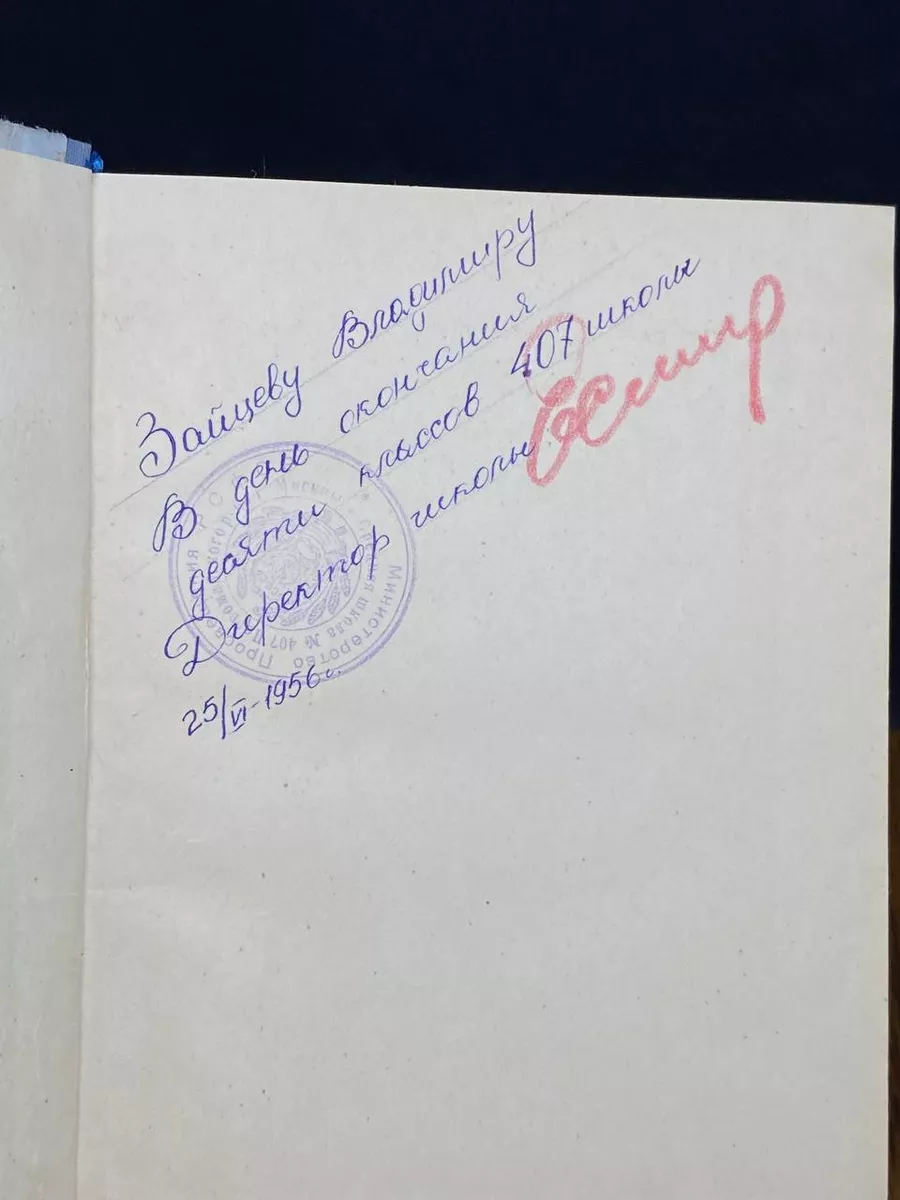 Зайцеву Владимиру
В день окончания
десяти классов 407 школы
Директор школы
25/VI-1956 г.
Министерство Просвещения РСФСР
школа № 407